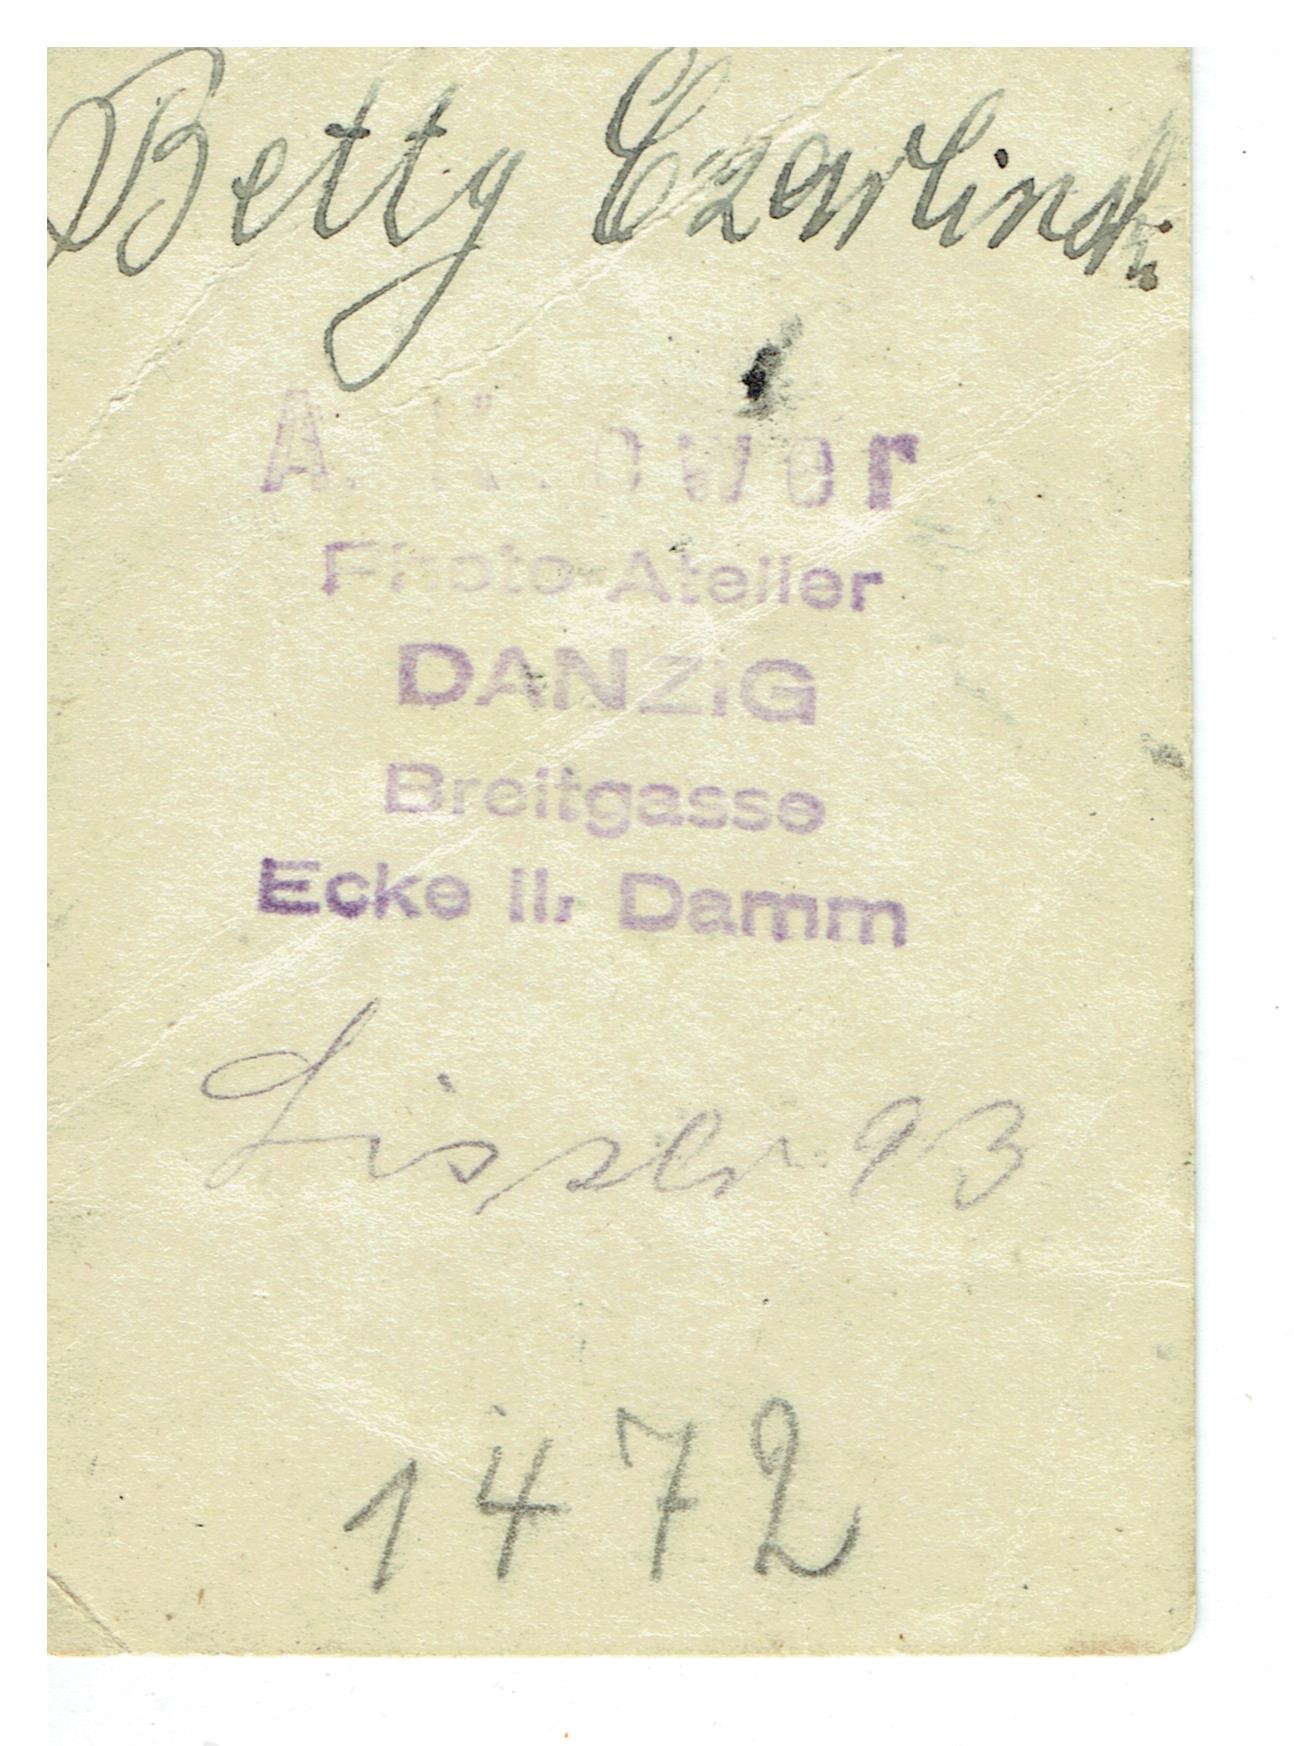 Betty Czarlinski
A.
Photo-Atelier
DANZIG
Breitgasse
Ecke II, Damm
93
1472